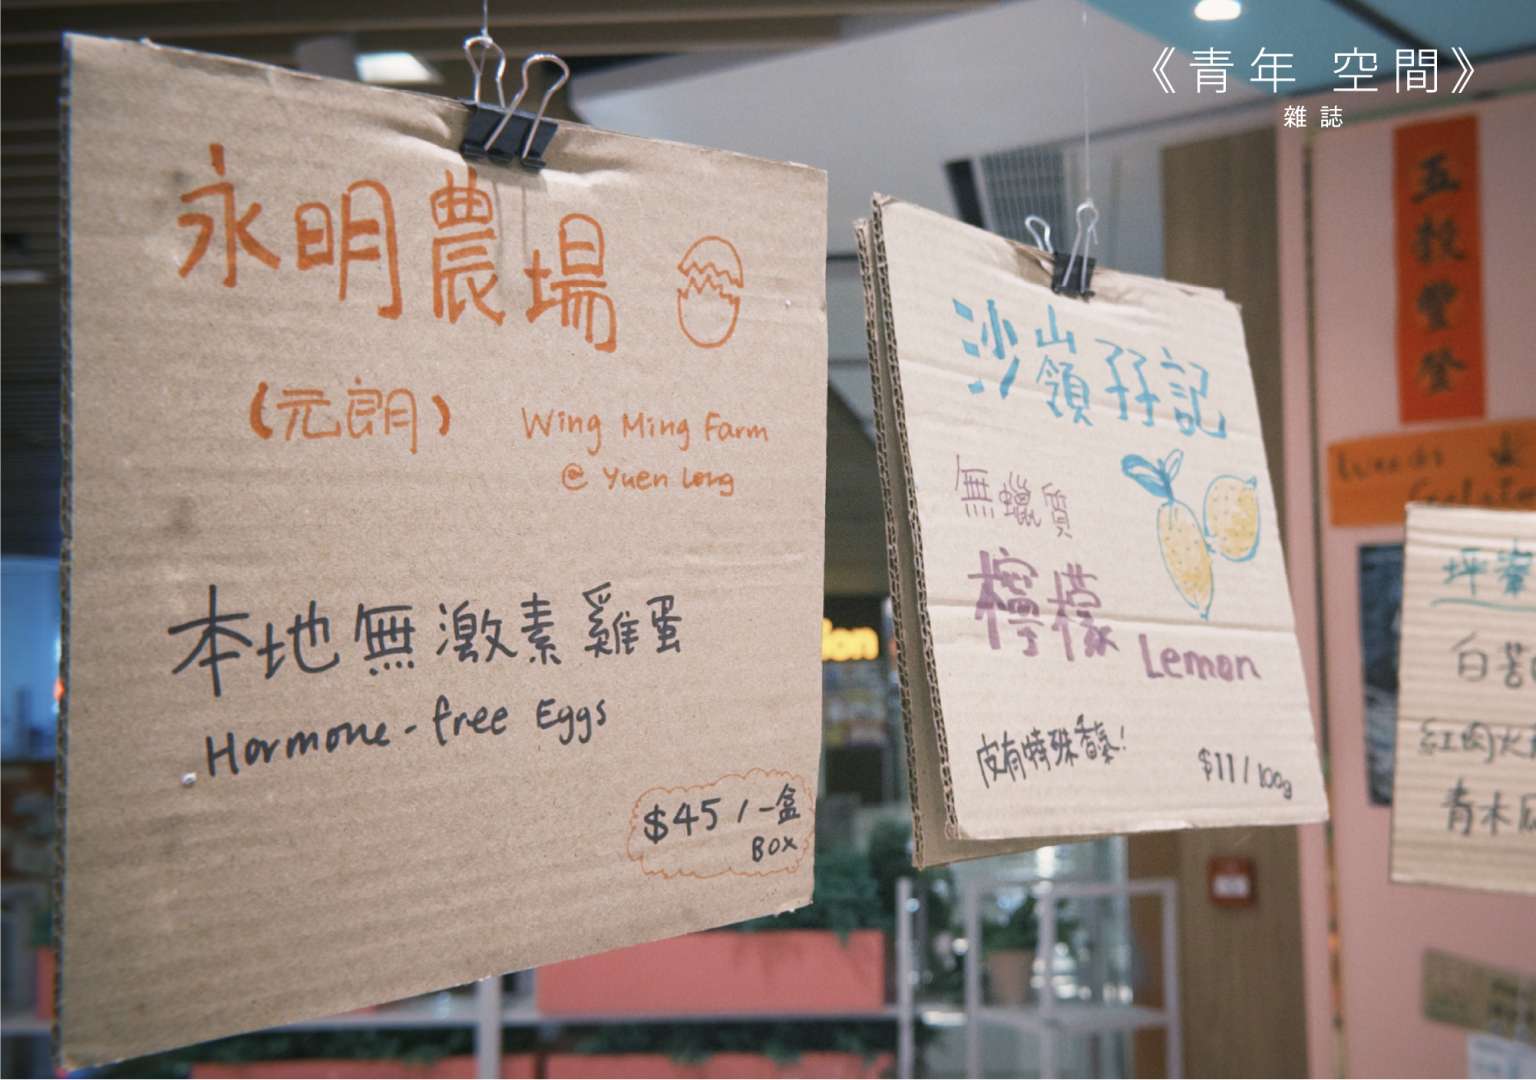 《青年 空間》
雜誌
永明農場
(元朗)
Wing Ming Farm
@ Yuen Long
本地無激素雞蛋
Hormone-free Eggs
$45/一盒
BOX
沙嶺孖記
無蠟質
檸檬 Lemon
皮有特殊香氣!
$11/100g
五穀豐登
坪輋
白苦
紅肉火
青木瓜